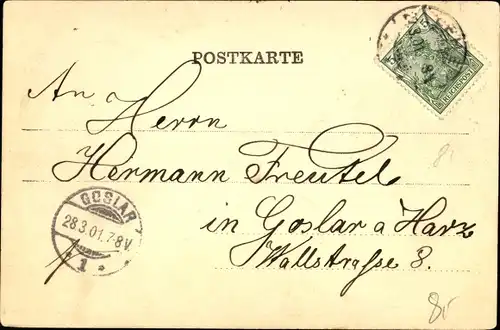 POSTKARTE
REICHSPOST
An
Herrn
Hermann Treutel
GOSLAR
28.3.01.7-8V.
1
*
in Goslar a Harz
Wallstrasse 8.
8,-
8,-